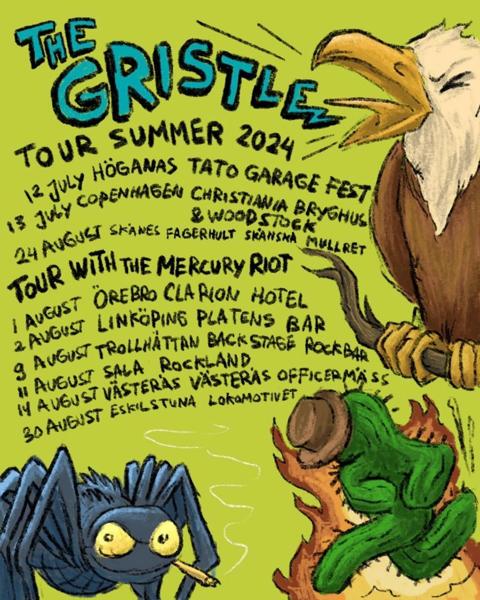 THE
GRISTLE
TOUR SUMMER 2024
12 JULY HÖGANAS TATO GARAGE FEST
13 JULY COPENHAGEN CHRISTIANIA BRYGHUS
& WOODSTOCK
24 AUGUST SKÅNES FAGERHULT SKÅNSKA MULLRET
TOUR WITH THE MERCURY RIOT
1 AUGUST ÖREBRO CLARION HOTEL
2 AUGUST LINKÖPING PLATENS BAR
9 AUGUST TROLLHÄTTAN BACKSTAGE ROCKBAR
11 AUGUST SALA ROCKLAND
14 AUGUST VÄSTERÅS VÄSTERÅS OFFICERMÄSS
30 AUGUST ESKILSTUNA LOKOMOTIVET